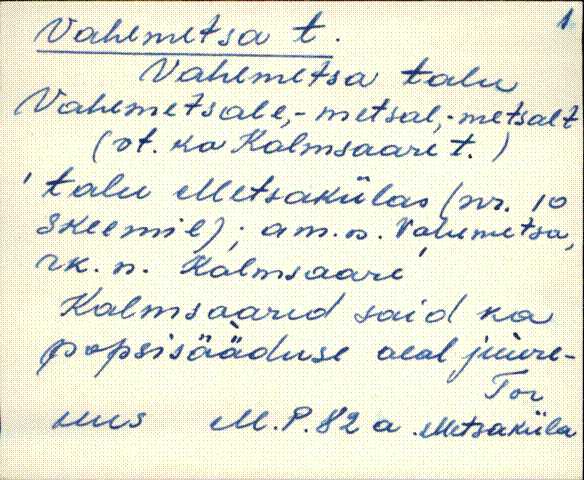 1
Vahemetsa t.
Vahemetsa talu
Vahemetsale, -metsal, -metsalt
(vt. ka Kalmsaare t.)
'talu Metsakülas (nr. 10
skeemil); am. n. Vahemetsa,
rk. n. Kalmsaare'
Kalmsaared said ka
popsisääduse aeal juure-
Tor
uus M.P. 82 a. Metsaküla